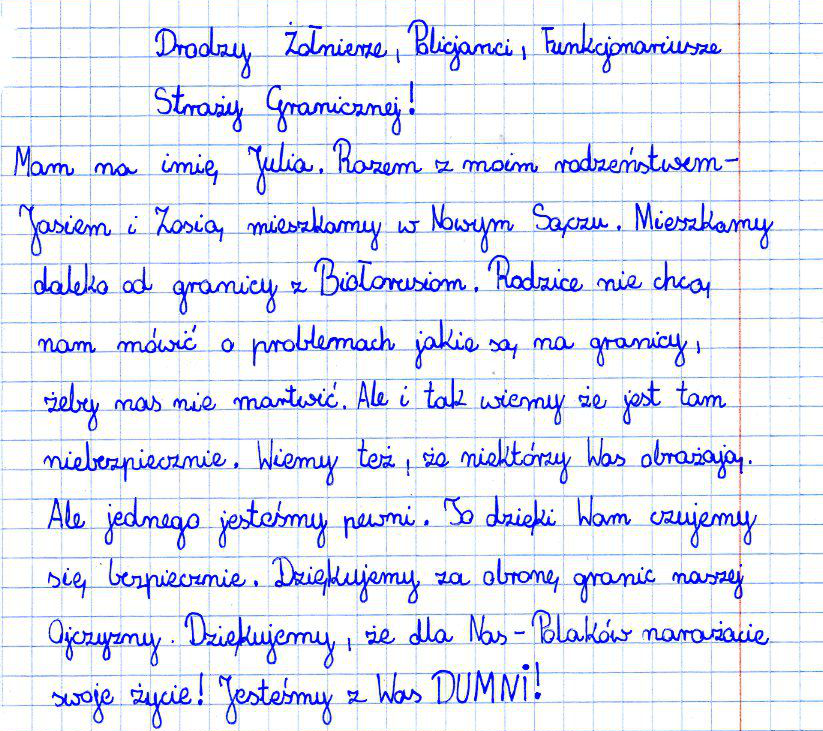 Drodzy Żołnierze, Policjanci, Funkcjonariusze
Straży Granicznej!
Mam na imię Julia. Razem z moim rodzeństwem-
Jasiem i Zosią mieszkamy w Nowym Sączu. Mieszkamy
daleko od granicy z Białorusiom. Rodzice nie chcą
nam mówić o problemach jakie są na granicy,
żeby nas nie martwić. Ale i tak wiemy że jest tam
niebezpiecznie. Wiemy też, że niektórzy Was obrażają.
Ale jednego jesteśmy pewni. To dzięki Wam czujemy
się bezpiecznie. Dziękujemy za obronę granic naszej
Ojczyzny. Dziękujemy, że dla Nas-Polaków narażacie
swoje życie! Jesteśmy z Was DUMNi!